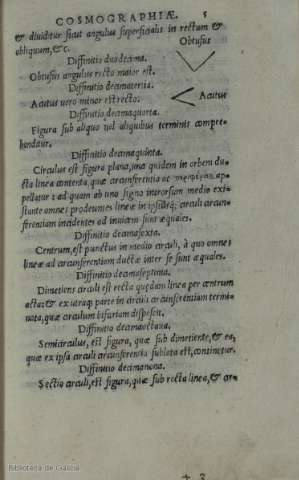 COSMOGRAPHIÆ. 5
& dividitur sicut angulus superficialis in rectum &
obliquum, &c. Obtusus
Diffinitio duodecima.
Obtusus angulus recto maior est.
Diffinitio decimatertia.
Acutus vero minor est recto. Acutus
Diffinitio decimaquarta.
Figura sub aliquo vel aliquibus terminis compre-
henditur.
Diffinitio decimaquinta.
Circulus est figura plana, una quidem in orbem du-
cta linea contenta, quæ circunferentia ac ap-
pellatur: ad quam ab uno signo introrsum medio exi-
stente omnes prodeuntes lineæ in ipsius circuli circun-
ferentiam incidentes ad invicem sunt æquales.
Diffinitio decimasexta.
Centrum, est punctus in medio circuli, à quo omnes
lineæ ad circunferentiam ductæ inter se sunt æquales.
Diffinitio decimaseptima.
Dimetiens circuli est recta quædam linea per centrum
acta: & ex utraq; parte in circuli circunferentiam termi-
nata, quæ circulum bifariam dispescit.
Diffinitio decimaoctava.
Semicirculus, est figura, quæ sub dimetiente, & ea,
quæ ex ipsa circuli circunferentia sublata est, continetur.
Diffinitio decimanona.
Sectio circuli, est figura, quæ sub recta linea, & cir-
3
Biblioteca de Galicia